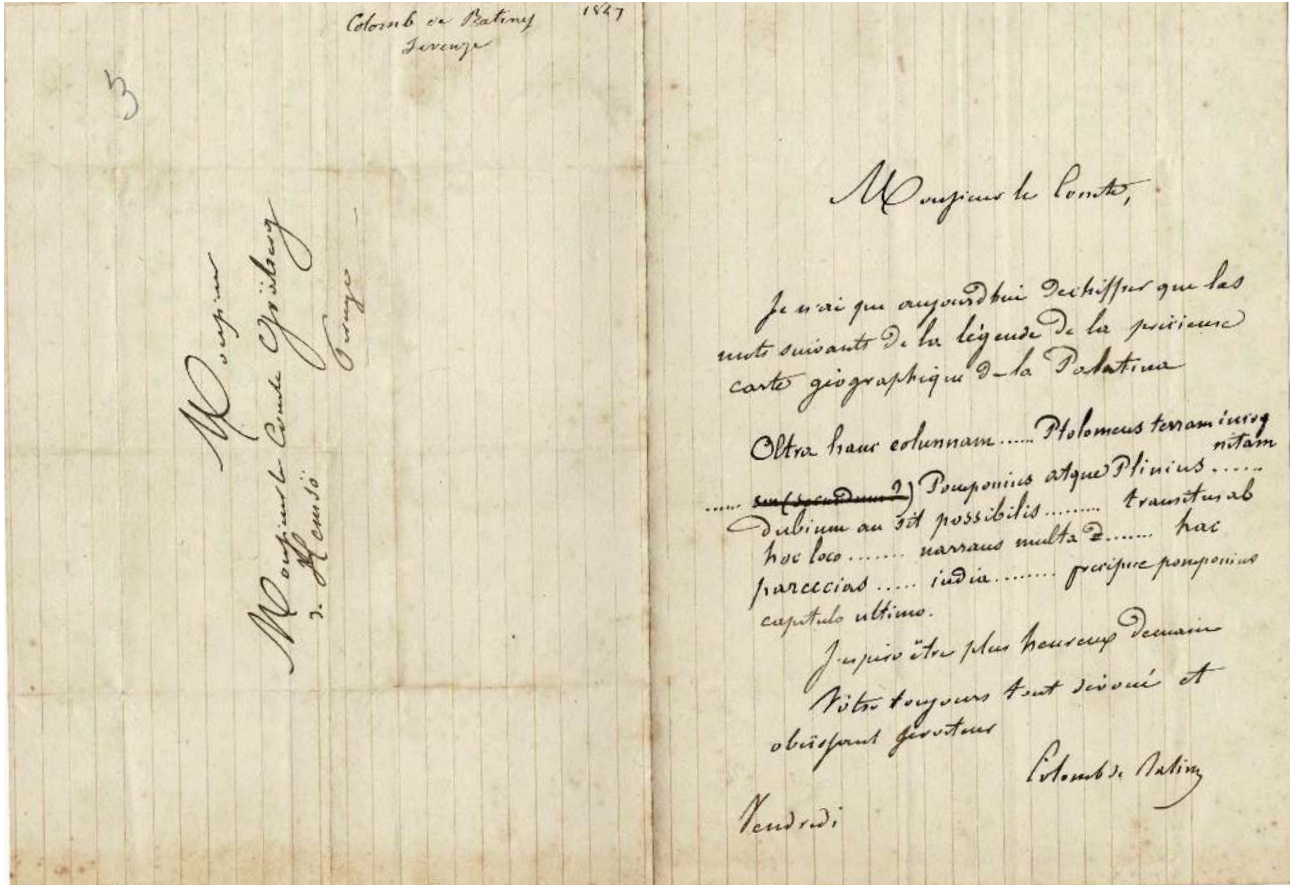 Colomb de Batines 1847
Firenze
3
Monsieur
Monsieur le Comte Gräberg
de Hemsö
Firenze
Monsieur le Comte,
Je n'ai que aujourdhui dechiffrer que las
mots suivants de la légende de la précieuse
carte géographique de la Palatina
Oltra hanc colunnam ...... Ptolomeus terram incog
nitam
...... (secundum?) Pomponius atque Plinius ......
dubium an sit possibilis ......... transitus ab
hoc loco ....... narrans multa ....... hac
parcecias ..... india ........ precipue pomponius
capitulo ultimo.
J'espère être plus heureux demain
Vôtre toujours tout dévoué et
obéissant serviteur
Colomb de Batines
Vendredi